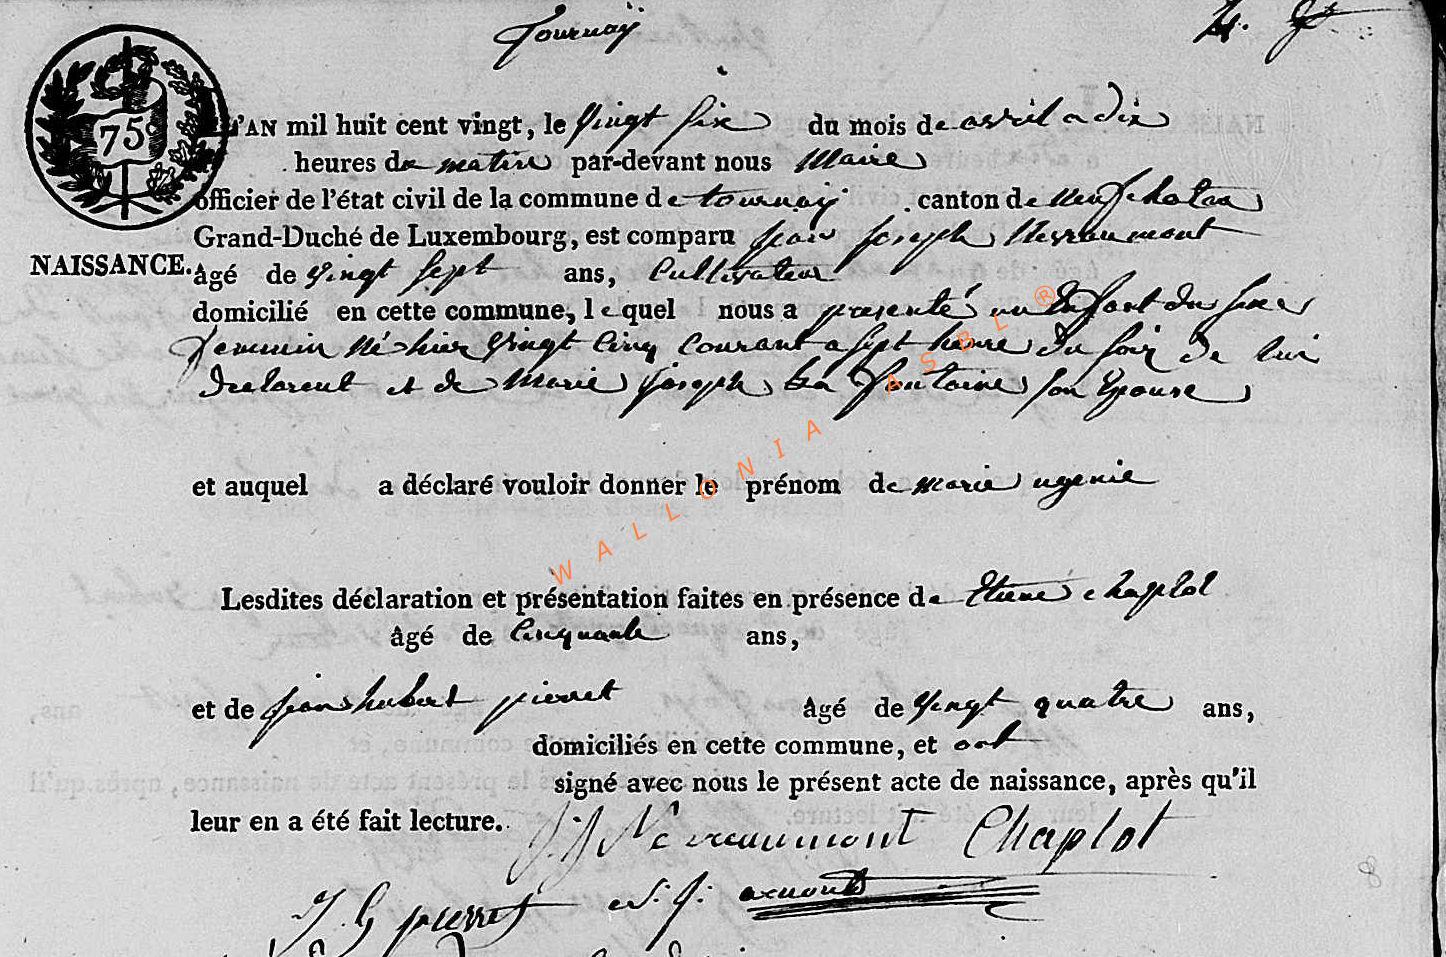 Tournaÿ
75
L'AN mil huit cent vingt, le vingt six du mois de avril a dix
heures de matin par-devant nous Maire
officier de l'état civil de la commune de tournaÿ canton de neufchateau
Grand-Duché de Luxembourg, est comparu jean joseph Nevraumont
NAISSANCE.
âgé de vingt sept ans, Cultivateur
domicilié en cette commune, lequel nous a presenté un Enfant du sexe
feminin né hier vingt Cinq Courant a sept heure du soir de lui
declarent et de Marie joseph La fontaine son Epouse
et auquel a déclaré vouloir donner le prénom de marie ugenie
Lesdites déclaration et présentation faites en présence de chaplot
âgé de Cinquante ans,
et de jean hubert pierret âgé de vingt quatre ans,
domiciliés en cette commune, et ont
signé avec nous le présent acte de naissance, après qu'il
leur en a été fait lecture.
J. J. Nevraumont Chaplot
pierret
WALLONIA ASBL ®
8